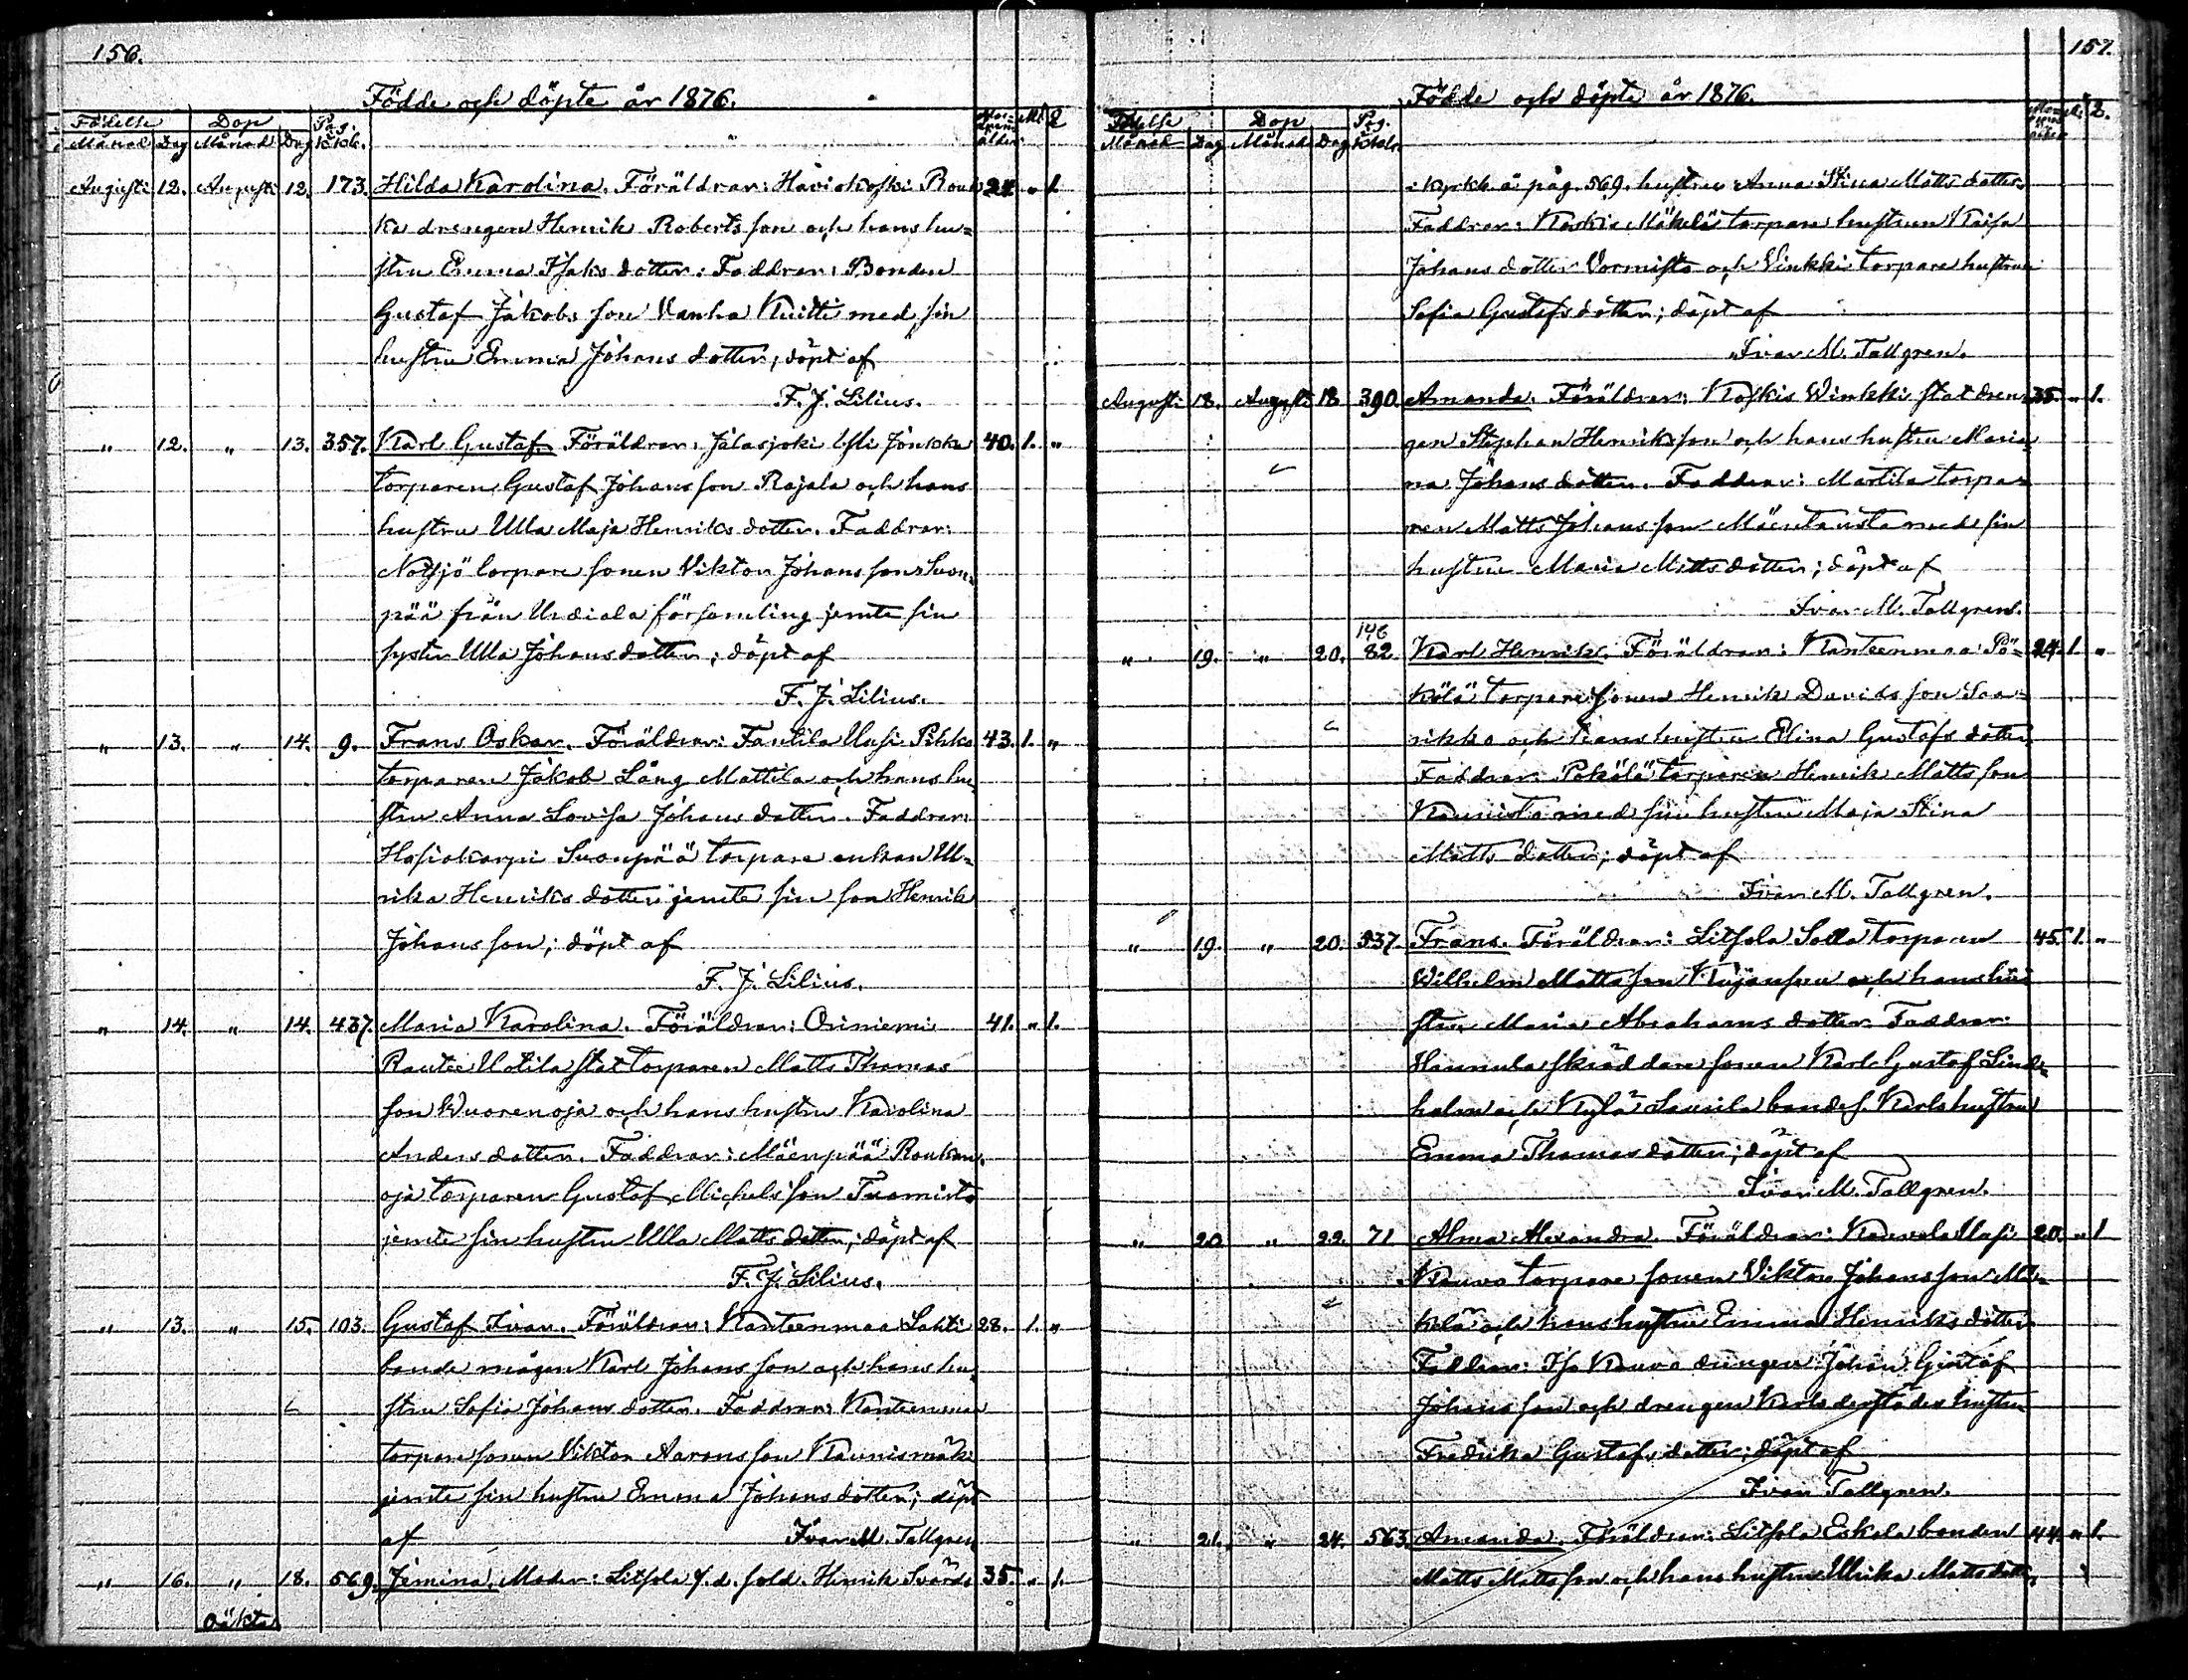 156.
Födde och döpte år 1876.
Födelse Dop Pag. i Kkb. M. Q.
Månad Dag Månad Dag
Augusti 12. Augusti 12. 173. Hilda Karolina. Föräldrar: Haviokoski Rou 24 " 1.
ka drengen Henrik Robertsson och hans hu=
stru Emma Isaks dotter: Faddrar: Bonden
Gustaf Jakobs son Vanha Knitti med sin
hustru Emma Johans dotter; döpt af
F. J. Lilius.
" 12. " 13. 357. Karl Gustaf. Föräldrar: Jalasjoki Jonkka 40. 1. "
torparen Gustaf Johansson Rajala och hans
hustru Ulla Maja Henriks dotter. Faddrar:
Notsjö torpare sonen Viktor Johansson Suon=
pää från Urdiala församling jemte sin
syster Ulla Johansdotter; döpt af
F. J. Lilius.
" 13. " 14. 9. Frans Oskar. Föräldrar: Fantila Uusi Pihko 43. 1. "
torparen Jakob Lång Mattila och hans hu
stru Anna Lovisa Johans dotter. Faddrar:
Hosiokorpi Suonpää torpare enkan Ul=
rika Henriks dotter jemte sin son Henrik
Johansson; döpt af
F. J. Lilius.
" 14. " 14. 437. Maria Karolina. Föräldrar: Oriniemi 41. " 1.
Rautee Uotila stattorparen Matts Thomas
son Wuorenoja och hans hustru Karolina
Anders dotter. Faddrar: Mäenpää Rouken
oja torparen Gustaf Michelsson Tuomisto
jemte sin hustru Ulla Matts dotter; döpt af
F. J. Lilius.
" 13. " 15. 103. Gustaf Ivar. Föräldrar: Kanteenmaa Lahti 28. 1. "
bonde mågen Karl Johansson och hans hu
stru Sofia Johans dotter. Faddrar: Kanteenmaa
torparesonen Viktor Aaronsson Kaunismäki
jemte sin hustru Emma Johans dotter; döpt
af Ivar M. Tallgren
" 16. " 18. 569. Jemina. Moder: Litsola f. d. sold. Henrik Svärds 35. " 1.
oäkta
157.
Födde och döpte år 1876.
Födelse Dop Pag. i Kkb. M. Q.
Månad Dag Månad Dag
i kyrkb. å pag. 569. hustru Anna Stina Matts dotter.
Faddrar: Koskis Mäkelä torpare hustrun Kaisa
Johans dotter Vormisto och Vinkki torpare hustrun
Sofia Gustafs dotter; döpt af
Ivar M. Tallgren.
Augusti 18. Augusti 18 390. Amanda. Föräldrar: Koskis Winkki statdren 35. " 1.
gen Stephan Henriksson och hans hustru Maria
na Johans dotter. Faddrar: Martila torpa=
ren Matts Johansson Mäentausta med sin
hustru Maria Matts dotter; döpt af
Ivar M. Tallgren.
146
" 19. " 20. 82. Karl Henrik. Föräldrar: Kanteenmaa Pö= 24. 1. "
kölä torparesonen Henrik Davidsson Saa=
rikko och hans hustru Elina Gustafs dotter
Faddrar: Pokölä torparen Henrik Mattsson
Kaunisto med sin hustru Maja Stina
Matts dotter; döpt af
Ivar M. Tallgren.
" 19. " 20. 537. Frans. Föräldrar: Litsola Solla torparen 45. 1. "
Wilhelm Mattsson Kujanpou och hans hu
stru Maria Abrahams dotter. Faddrar:
Hinnula skräddare sonen Karl Gustaf Lind=
holm och Kylä Saurila bondes. Karls hustru
Emma Thomas dotter; döpt af
Ivar M. Tallgren.
" 20 " 22. 71. Alma Alexandra. Föräldrar: Kauvola Uusi 20. " 1
Kauvo torpare sonen Viktor Johansson Mä=
kelä och hans hustru Emma Henriks dotter
Faddrar: Iso Kauvo drengen Johan Gustaf
Johansson och drengen Karls derstädes hustru
Fredrika Gustafs dotter; döpt af
Ivar Tallgren.
" 21. " 24. 563. Amanda. Föräldrar: Litsola Eskola bonden 44. " 1.
Matts Mattsson och hans hustru Ulrika Matts dott